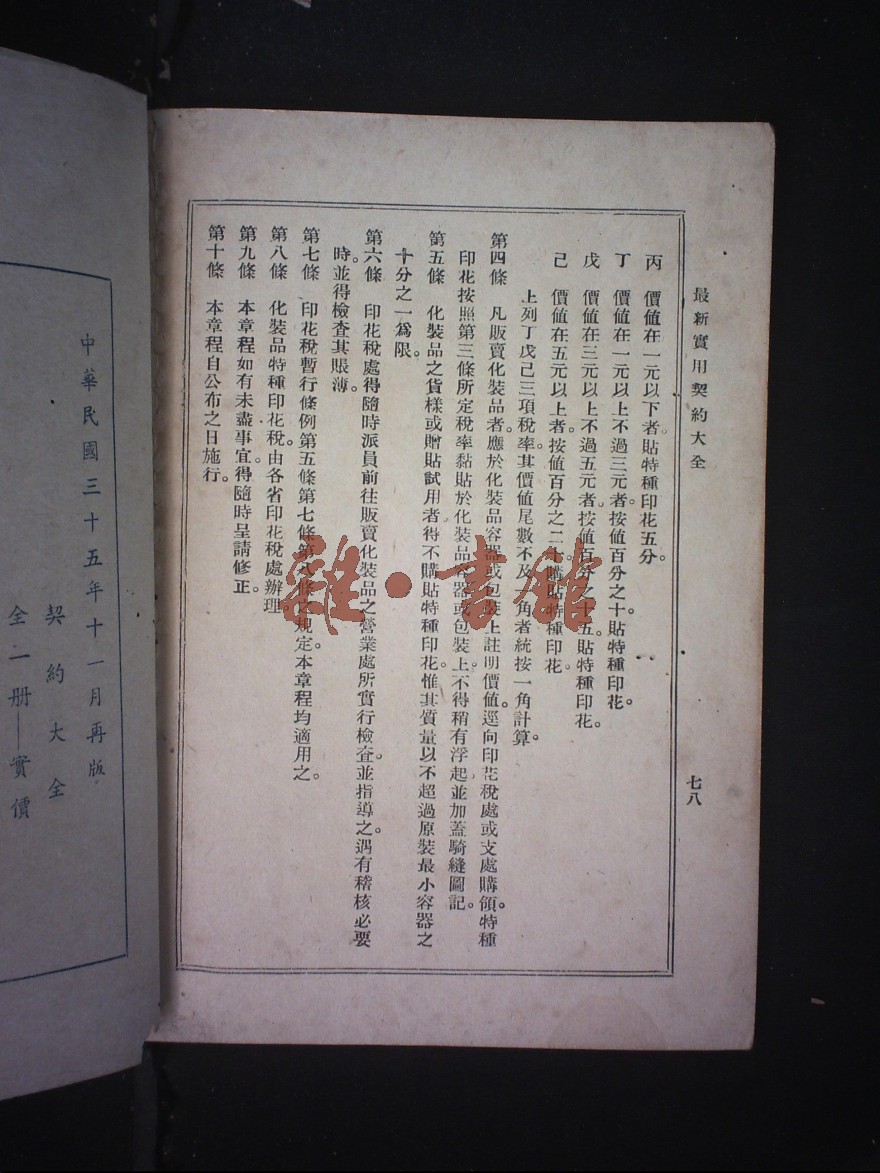 最新實用契約大全
七八
丙　價值在一元以下者貼特種印花五分。
丁　價值在一元以上不過三元者。按值百分之十貼特種印花。
戊　價值在三元以上不過五元者。按值百分之十五貼特種印花。
己　價值在五元以上者。按值百分之二十購貼特種印花。
上列丁戊己三項稅率。其價值尾數不及一角者統按一角計算。
第四條　凡販賣化裝品者。應於化裝品容器或包裝上註明價值。逕向印花稅處或支處購領特種
印花按照第三條所定稅率黏貼於化裝品容器或包裝上。不得稍有浮起並加蓋騎縫圖記。
第五條　化裝品之貨樣或贈貼試用者得不購貼特種印花。惟其質量以不超過原裝最小容器之
十分之一爲限。
第六條　印花稅處得隨時派員前往販賣化裝品之營業處所實行檢查。並指導之。遇有稽核必要
時。並得檢查其賬薄。
第七條　印花稅暫行條例第五條第七條第八條之規定。本章程均適用之。
第八條　化裝品特種印花稅。由各省印花稅處辦理。
第九條　本章程如有未盡事宜。得隨時呈請修正。
第十條　本章程自公布之日施行。
中華民國三十五年十一月再版
契約大全
全一册——實價
雜·書館